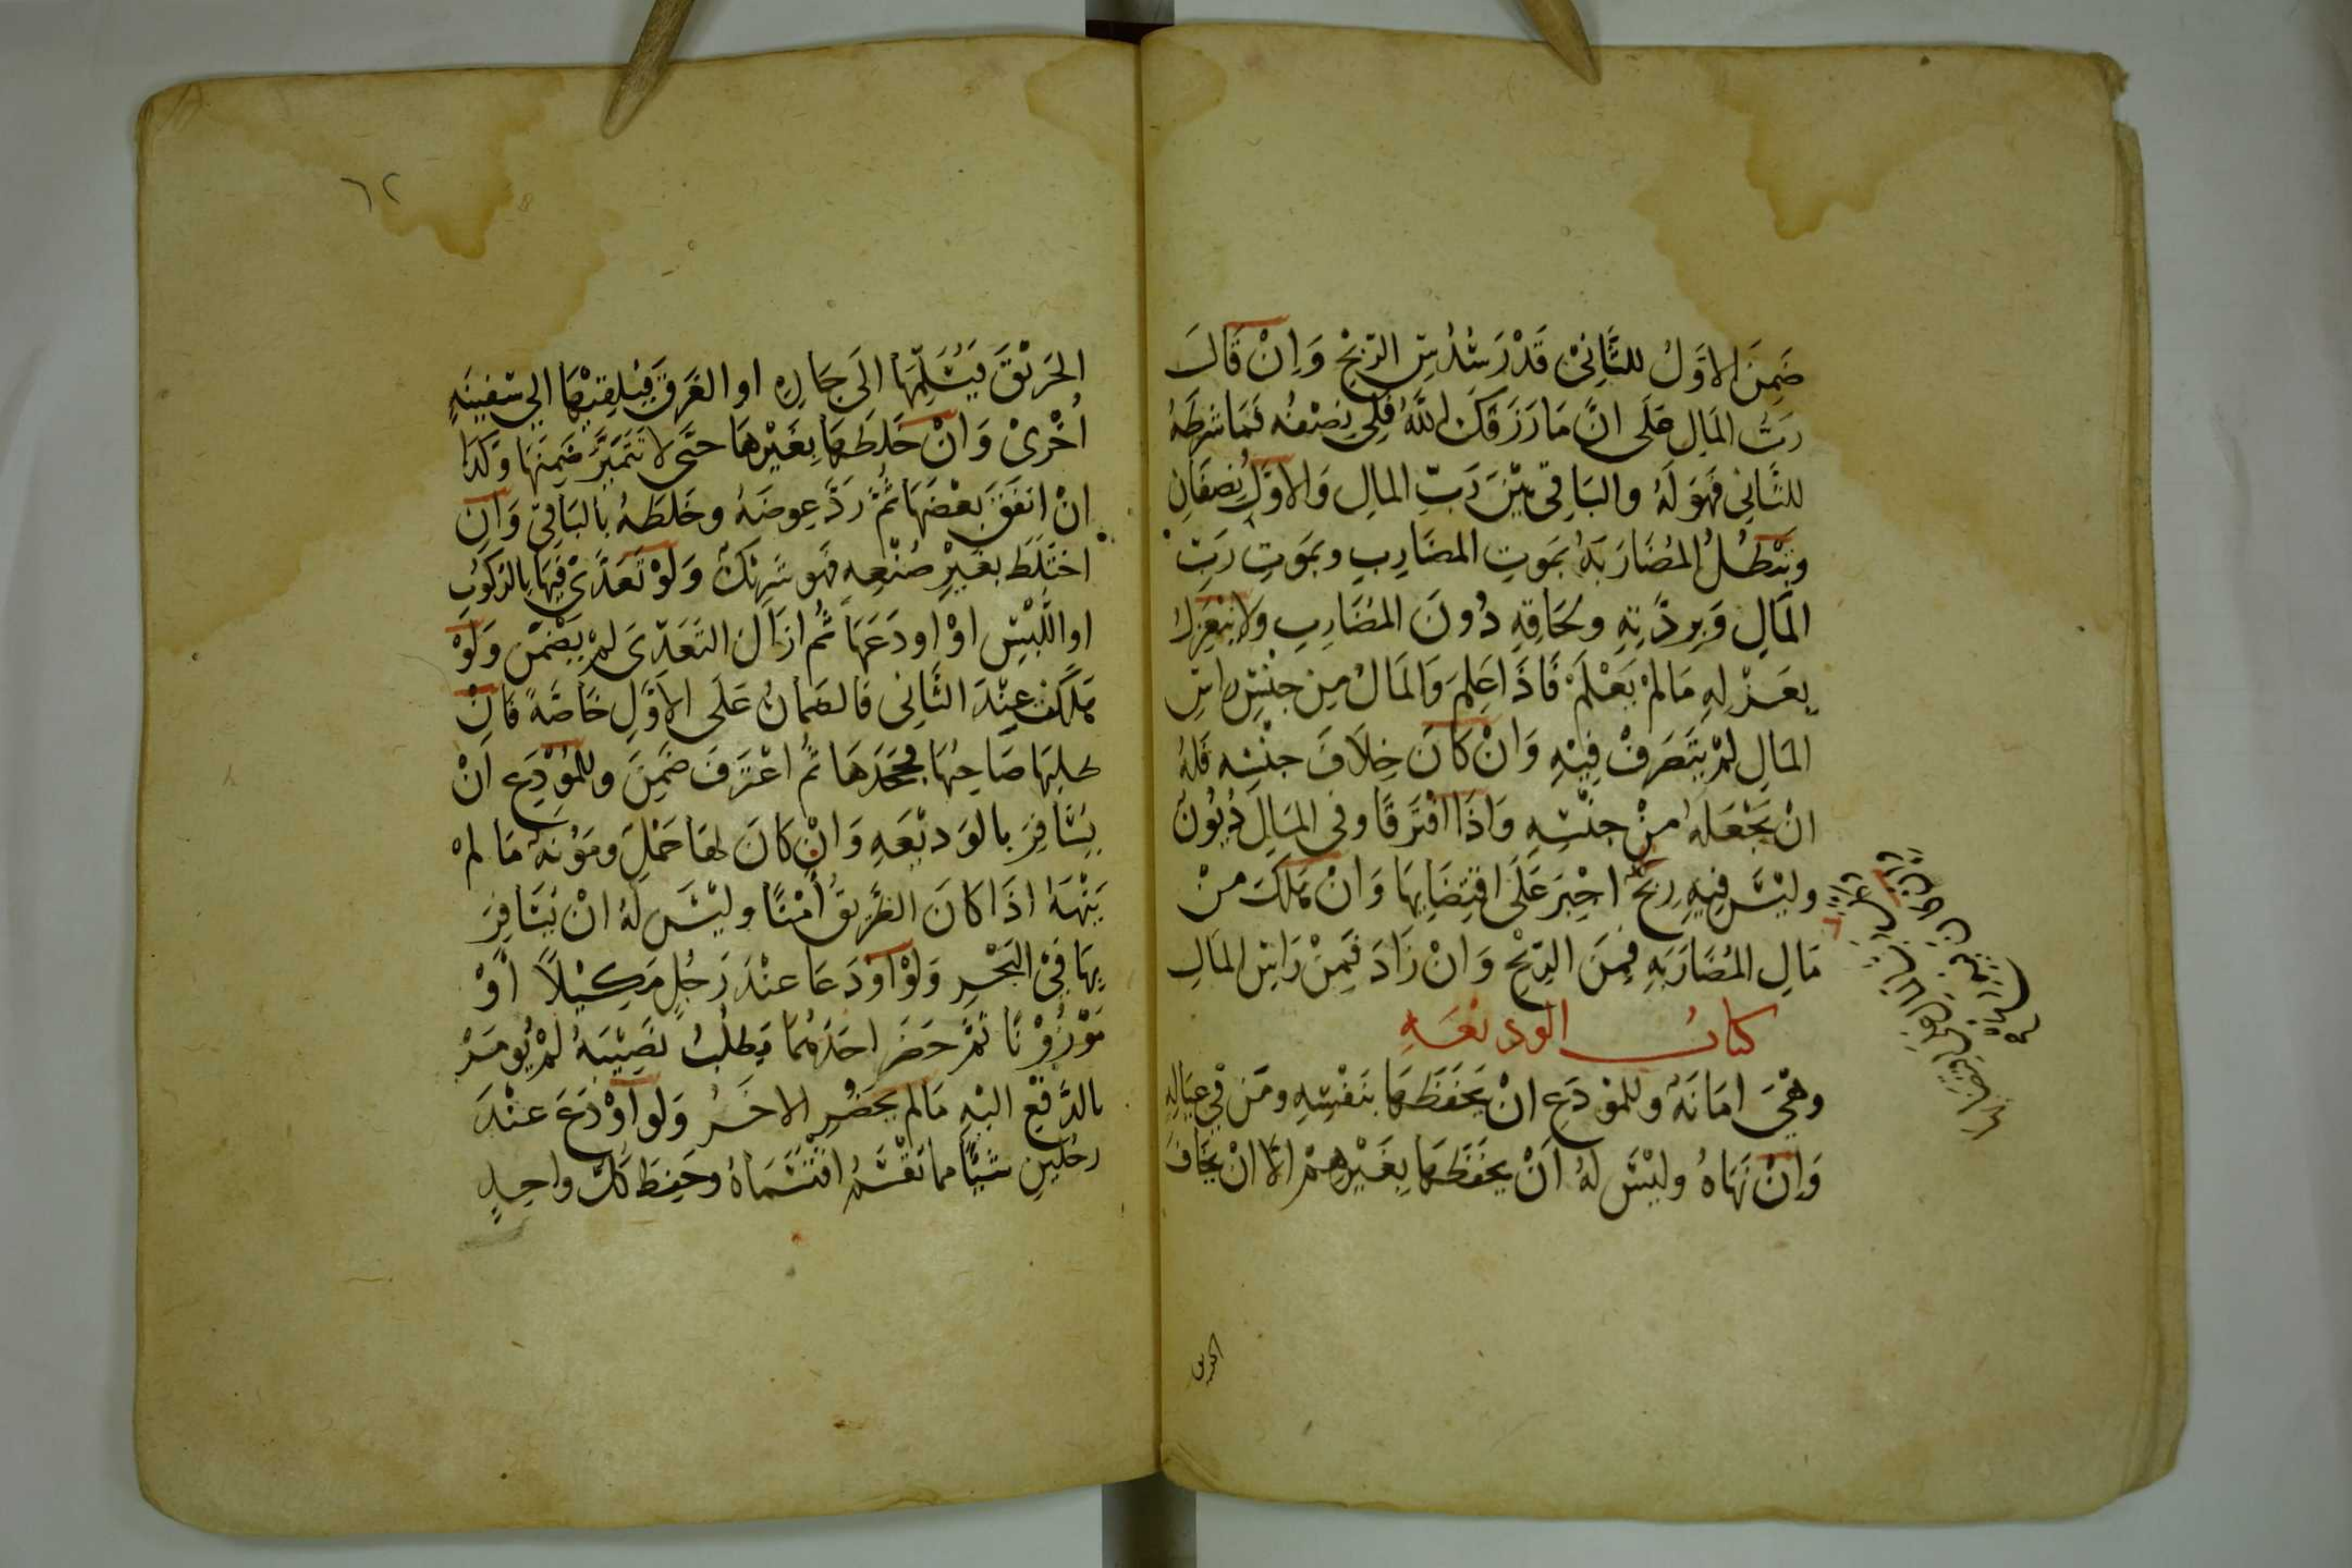 ضَمِنَ الاوَّلُ للثَّانِىْ قَدْرَ سُدُسِ الرّبْحْ وَاِنْ قَالَ
رَبُّ المَالِ عَلَى انَّ مَا رَزَقَكَ اللهُ فَلِي نِصْفُه فَمَا شَرَطَهُ
للثَّانِى فَهوَ لَهُ والبَاقِى بَيْنَ رَبِّ المَالِ وَالاوَّلِ نِصفَانِ
وتَبْطُلُ المُضَارَبَةُ بمَوتِ المضَارِبِ وبمَوتِ رَبِّ
المَالِ وَبِردَّتِهِ ولحَاقِهِ دُونَ المُضَارِبِ ولا يَنْعَزِلُ
بِعَزْلِهِ مَا لمْ يَعْلَمْ فَاذَا عَلِمَ وَالمَالُ مِن جنْسِ راسِ
المَالِ لمْ يتَصَرفْ فِيْهِ وَانْ كَانَ خِلَافَ جنْسِه فَلهُ
انْ يَجْعَلهُ منْ جنْسِهِ وَاذَا افْتَرَقَا وفى المَالِ دُيُونٌ
وليْسَ فِيهِ رِبْحٌ اجْبِرَ عَلَى اقتِضَايِهَا وَانْ هَلَكَ منْ
مَالِ المُضَارَبَهِ فمِنَ الرِّبْحِ وَانْ زَادَ فَمِنْ رَاسِ المَالِ
كتابُ الوديْعَهِ
وهْيَ امَانَهٌ وللمُوْدَعِ انْ يَحْفَظَهَا بنَفْسِهِ ومَن فِي عِيَالِهِ
وَاِنْ نَهَاهُ وليْسَ لهُ اَنْ يحْفَظَهَا بِغَيْرِهمْ الّا انْ يخَافَ
الحريق
٦٢
الحَرِيْقَ فيُسَلِّمَهَا الَى جَارِهِ او الغَرَقَ فيُلقِيْهَا الى سَفِينَهٍ
اُخْرىْ وَانْ خَلَطَهَا بِغَيْرهَا حتَّى لا تَتَمَيَّزَ ضَمِنَهَا وكَذَا
انْ انفَقَ بَعْضَهَا ثُمَّ رَدَّ عِوضَهُ وخَلطَهُ بالبَاقِى وَانِ
اختَلَط بغَيْرِ صُنْعِهِ فَهو شَرِيْكٌ وَلَوْ تَعَدَّىْ فِيْهَا بالرّكُوبِ
او اللّبْسِ اوْ اودَعَهَا ثُم ازَالَ التَّعَدِّىَ لمْ يَضْمَنْ وَلَوْ
هَلَكَت عِنْدَ الثَّانِى فَالضَمانُ عَلَى الاَوَّلِ خَاصَّهً فَانْ
طلبَهَا صَاحِبُهَا فجَحَدَهَا ثُم اعْتَرَفَ ضَمِنَ وللمُوْدَعِ انْ
يُسَافِرَ بالوَديْعَهِ وَانْ كَانَ لهَا حَمْلٌ ومَؤُنَهٌ مَا لمْ
يَنْهَهُ اذَا كَانَ الطَّرِيْقُ اَمْنًا وليْسَ لهُ انْ يُسَافِرَ
بِهَا فىْ البَحْرِ وَلَوْ اَوْدَعَا عنْدَ رَجُلٍ مَكِيْلًا اَوْ
مَوْزُوْنًا ثمَّ حَضَرَ احَدُهُمَا يَطلُبُ نَصِيْبَهُ لمْ يُومَرْ
بالدَّفْعِ اليْهِ مَا لم يحضُرِ الاخَرُ وَلَو اوْدَعَ عنْدَ
رجُلَيْنِ شَيْئًا مما يُقْسَمُ اقتَسَمَاهُ وحَفِظَ كلُّ واحِدٍ